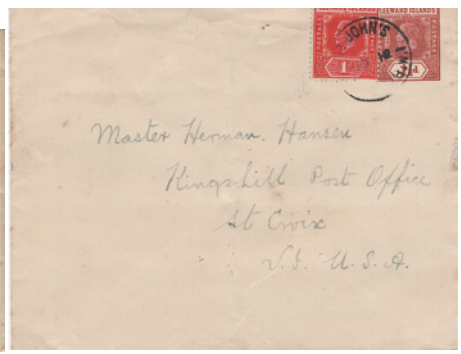 LEEWARD ISLANDS
POSTAGE
1
JOHN'S
Master Herman. Hansen
Kingshill Post Office
St Croix
V.I. U.S.A.